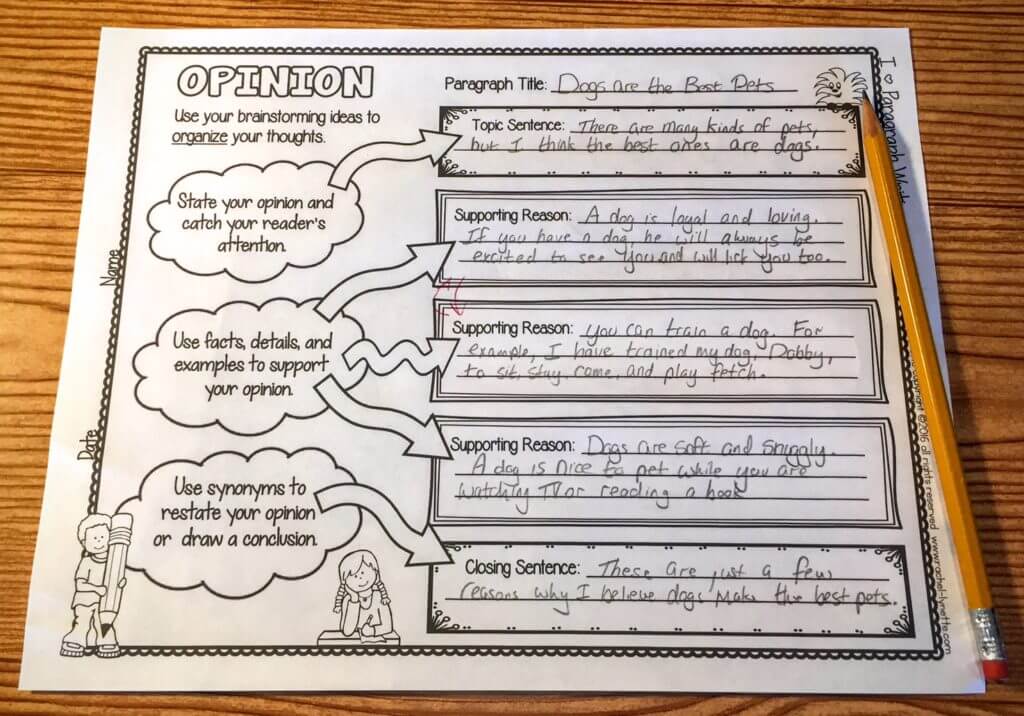 OPINION
Use your brainstorming ideas to
organize your thoughts.
State your opinion and
catch your reader's
attention.
Use facts, details, and
examples to support
your opinion.
Use synonyms to
restate your opinion
or draw a conclusion.
Name
Date
Paragraph Title: Dogs are the Best Pets
Topic Sentence: There are many kinds of pets,
but I think the best ones are dogs.
Supporting Reason: A dog is loyal and loving.
If you have a dog, he will always be
excited to see you and will lick you too.
Supporting Reason: You can train a dog. For
example, I have trained my dog, Dobby,
to sit, stay, come, and play fetch.
Supporting Reason: Dogs are soft and snuggly.
A dog is nice to pet while you are
watching TV or reading a book
Closing Sentence: These are just a few
reasons why I believe dogs make the best pets.
I ♡ Paragraph
©2016 all rights reserved